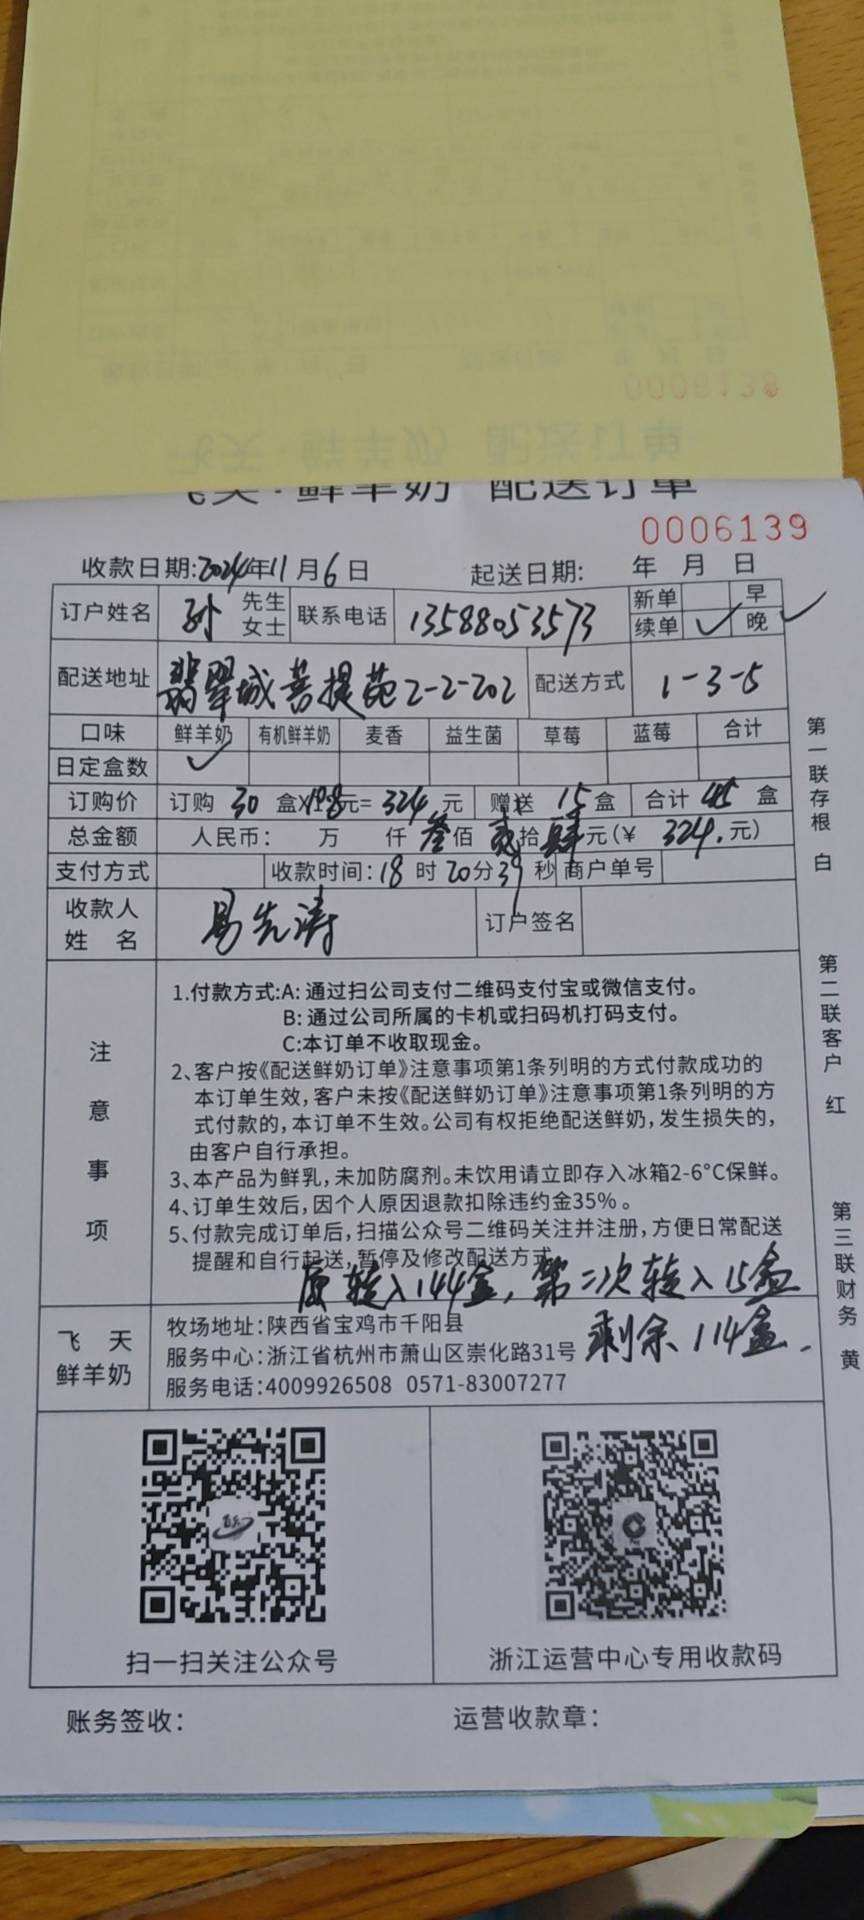 飞天·鲜羊奶 配送订单
0006139
收款日期:2024年11月6日 起送日期: 年 月 日
订户姓名 孙 先生 女士 联系电话 13588053573 新单 早
续单 ✓ 晚 ✓
配送地址 翡翠城菩提苑2-2-202 配送方式 1-3-5
口味 鲜羊奶 有机鲜羊奶 麦香 益生菌 草莓 蓝莓 合计
日定盒数 ✓
订购价 订购 30 盒× 元= 324 元 赠送 15 盒 合计 45 盒
总金额 人民币: 万 仟 叁佰 贰拾 肆元(¥ 324. 元)
支付方式 收款时间:18时20分39秒 商户单号
收款人姓名 易先涛 订户签名
注意事项
1.付款方式:A:通过扫公司支付二维码支付宝或微信支付。
B:通过公司所属的卡机或扫码机打码支付。
C:本订单不收取现金。
2、客户按《配送鲜奶订单》注意事项第1条列明的方式付款成功的
本订单生效,客户未按《配送鲜奶订单》注意事项第1条列明的方
式付款的,本订单不生效。公司有权拒绝配送鲜奶,发生损失的,
由客户自行承担。
3、本产品为鲜乳,未加防腐剂。未饮用请立即存入冰箱2-6°C保鲜。
4、订单生效后,因个人原因退款扣除违约金35%。
5、付款完成订单后,扫描公众号二维码关注并注册,方便日常配送
提醒和自行起送,暂停及修改配送方式
原转入144盒,第二次转入15盒
剩余114盒.
飞天鲜羊奶
牧场地址:陕西省宝鸡市千阳县
服务中心:浙江省杭州市萧山区崇化路31号
服务电话:4009926508 0571-83007277
扫一扫关注公众号 浙江运营中心专用收款码
账务签收: 运营收款章:
第一联存根 白
第二联客户 红
第三联财务 黄